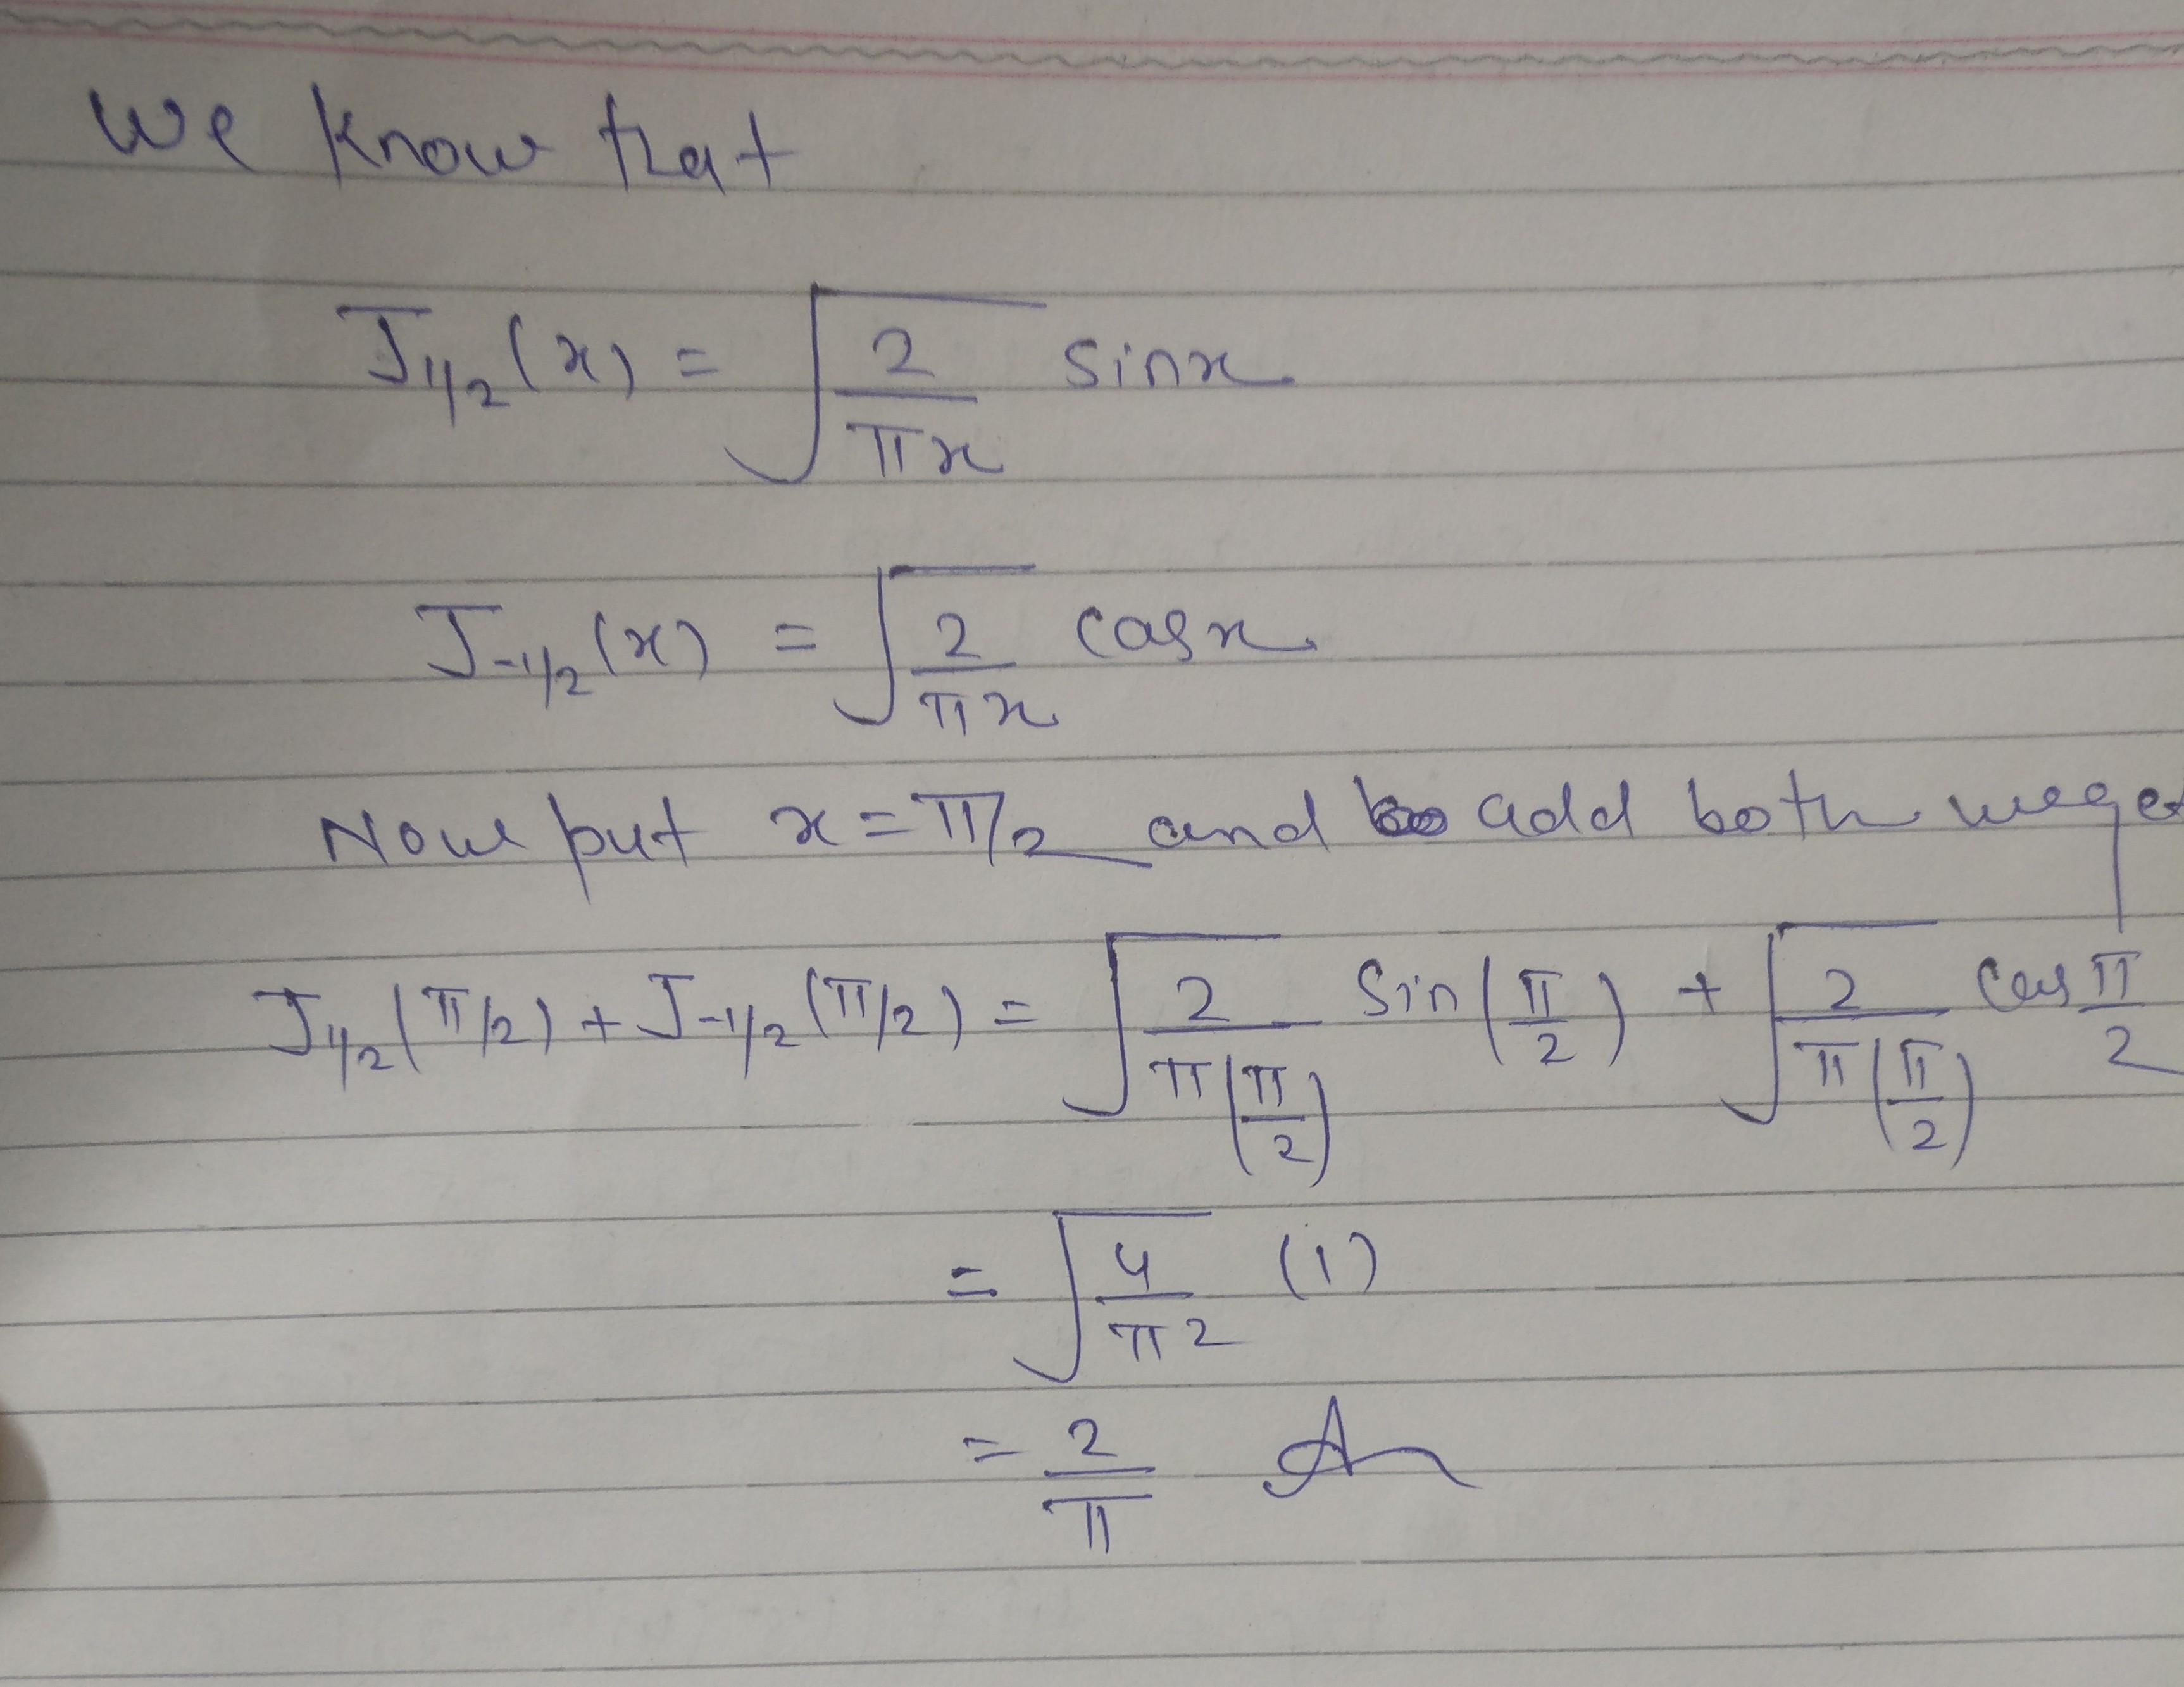 We know that
J1/2(x) = √(2/πx) sinx
J-1/2(x) = √(2/πx) cosx
Now put x = π/2 and add both we get
J1/2(π/2) + J-1/2(π/2) = √(2/π(π/2)) Sin(π/2) + √(2/π(π/2)) cos π/2
= √(4/π2) (1)
= 2/π